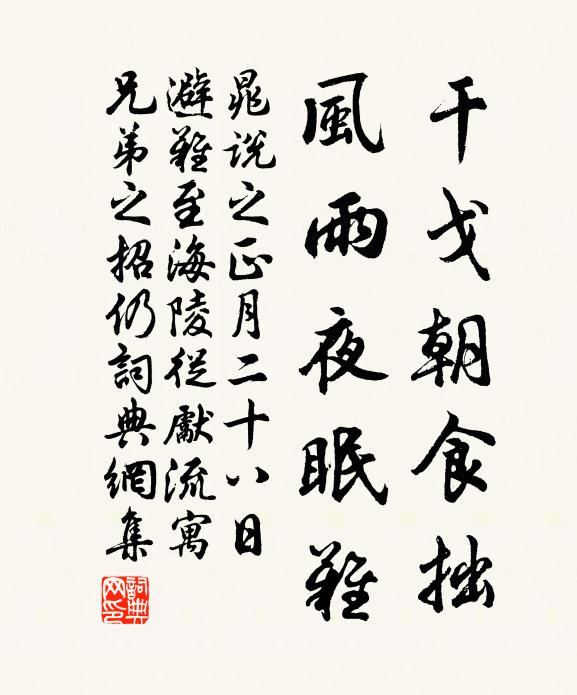 干戈朝食拙
風雨夜眠難
晁說之正月二十八日
避難至海陵從獻流寓
兄弟之招仍詞典網集
詞典網印